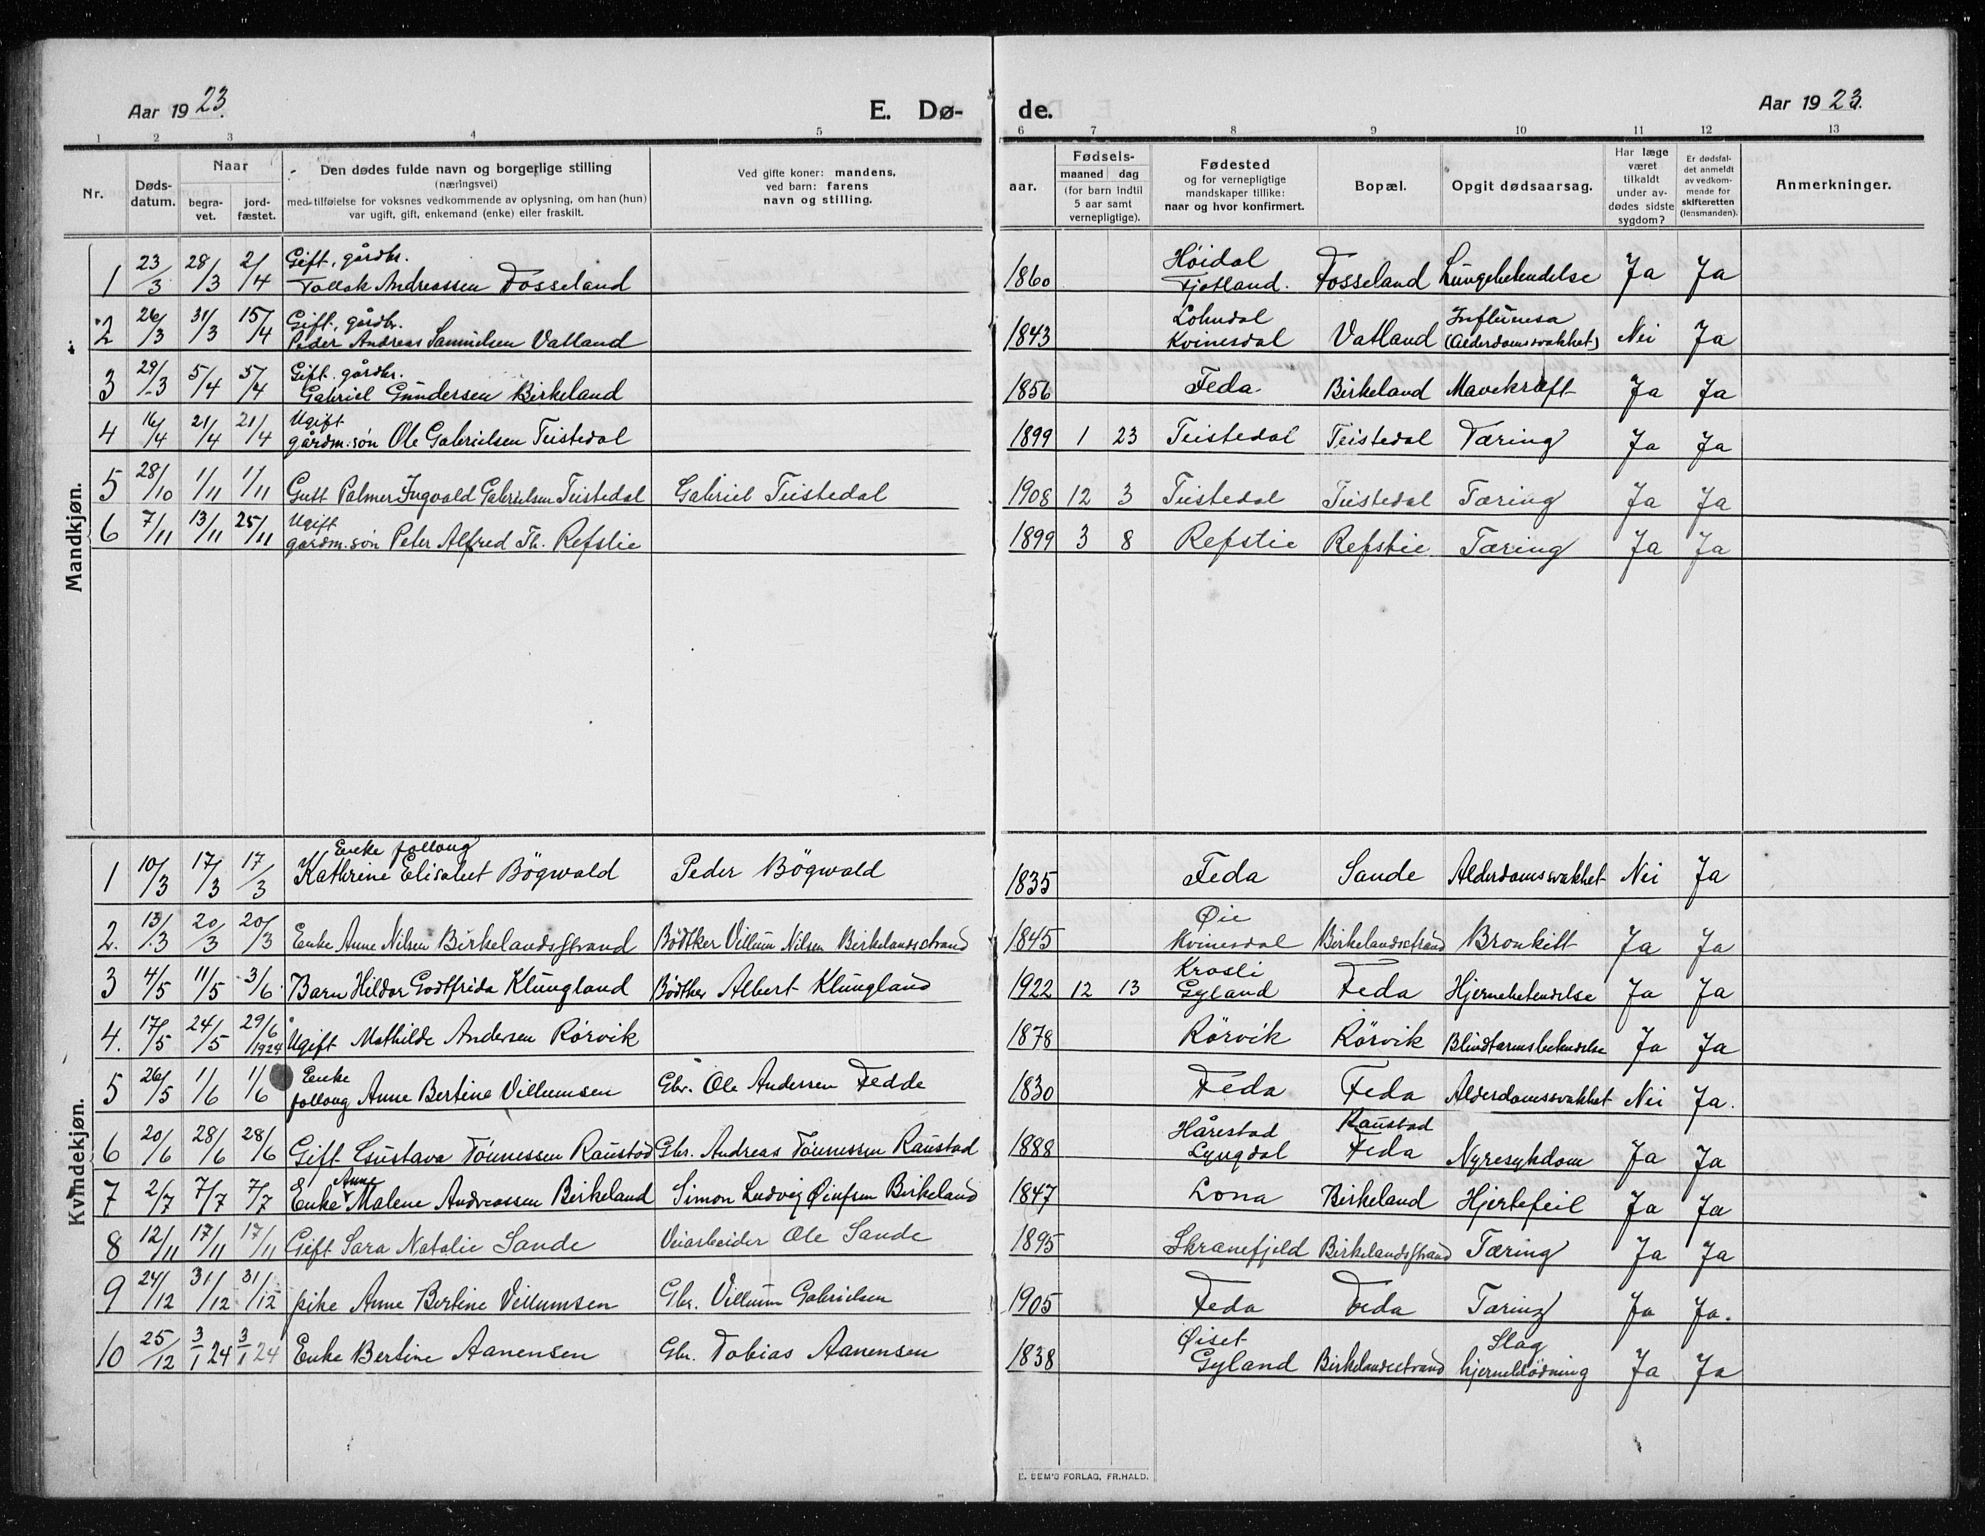 Aar 1923.
E. Dø-
de.
Aar 1923.
1 2 3 4 5 6 7 8 9 10 11 12 13
Nr.
Døds-
datum.
Naar
begra-
vet.
jord-
fæstet.
Den dødes fulde navn og borgerlige stilling
(næringsvei)
med tilføielse for voksnes vedkommende av oplysning, om han (hun)
var ugift, gift, enkemand (enke) eller fraskilt.
Ved gifte koner: mandens,
ved barn: farens
navn og stilling.
Fødsels-
aar.
maaned dag
(for barn indtil
5 aar samt
vernepligtige).
Fødested
og for vernepligtige
mandskaper tillike:
naar og hvor konfirmert.
Bopæl.
Opgit dødsaarsag.
Har læge
været
tilkaldt
under av-
dødes sidste
sygdom?
Er dødsfal-
det anmeldt
av vedkom-
mende for
skifteretten
(lensmanden).
Anmerkninger.
Mandkjøn.
Gift, gårdbr. Høidal
1 23/3 28/3 2/4 Tollak Andreassen Fosseland 1860 Fjotland. Fosseland Lungebetendelse Ja Ja
Gift, gårdbr. Lohndal Influensa
2 26/3 31/3 15/4 Peder Andreas Samuelsen Vatland 1843 Kvinesdal Vatland (Alderdomssvakhet) Nei Ja
Gift. gårdbr.
3 29/3 5/4 5/4 Gabriel Gundersen Birkeland 1856 Feda. Birkeland Mavekræft Ja Ja
Ugift
4 16/4 21/4 21/4 gårdm.søn Ole Gabrielsen Teistedal 1899 1 23 Teistedal Teistedal Tæring Ja Ja
5 28/10 1/11 1/11 Gutt Palmer Ingvald Gabrielsen Teistedal Gabriel Teistedal 1908 12 3 Teistedal Teistedal Tæring Ja Ja
Ugift
6 7/11 13/11 25/11 gårdm.søn Peter Alfred Th. Refstie 1899 3 8 Refstie Refstie Tæring Ja Ja
Kvindekjøn.
Enke follaug
1 10/3 17/3 17/3 Kathrine Elisabet Bögwald Peder Bögwald 1835 Feda Sande Alderdomssvakhet Nei Ja
Øie
2. 13/3 20/3 20/3 Enke Anne Nilsen Birkelandsstrand Bødtker Villum Nilsen Birkelandsstrand 1845 Kvinesdal Birkelandsstrand Bronkitt Ja Ja
Krosli
3 4/5 11/5 3/6 Barn Hildor Godtfrida Klungland Bødtker Albert Klungland 1922 12 13 Gyland Feda Hjernebetendelse Ja Ja
4. 17/5 24/5 29/6 1924 Ugift Mathilde Andersen Rörvik 1878 Rörvik Rörvik Blindtarmsbetendelse Ja Ja
Enke
5 26/5 1/6 1/6 follaug Anne Bertine Villumsen Gbr. Ole Andersen Fedde 1830 Feda Feda Alderdomssvakhet Nei Ja.
Hårestad Raustad
6 20/6 28/6 28/6 Gift Gustava Tönnessen Raustad Gbr. Andreas Tönnessen Raustad 1888 Lyngdal Feda Nyresykdom Ja Ja
Anne
7 2/7 7/7 7/7 Enke Malene Andreassen Birkeland Simon Ludvig Øinfsen Birkeland 1847 Lona Birkeland Hjertefeil Ja Ja
8 12/11 17/11 17/11 Gift Sara Natalie Sande Veiarbeider Ole Sande 1895 Skranefjeld Birkelandsstrand Tæring Ja Ja
9 24/12 31/12 31/12 pike Anne Bertine Villumsen Gbr. Villum Gabrielsen 1905 Feda Feda Tæring Ja Ja.
Øiset Slag
10 25/12 3/1 24 3/1 24 Enke Bertine Aanensen Gbr. Tobias Aanensen 1838 Gyland Birkelandsstrand hjerneblödning Ja Ja
E. SEM'S FORLAG, FR.HALD.